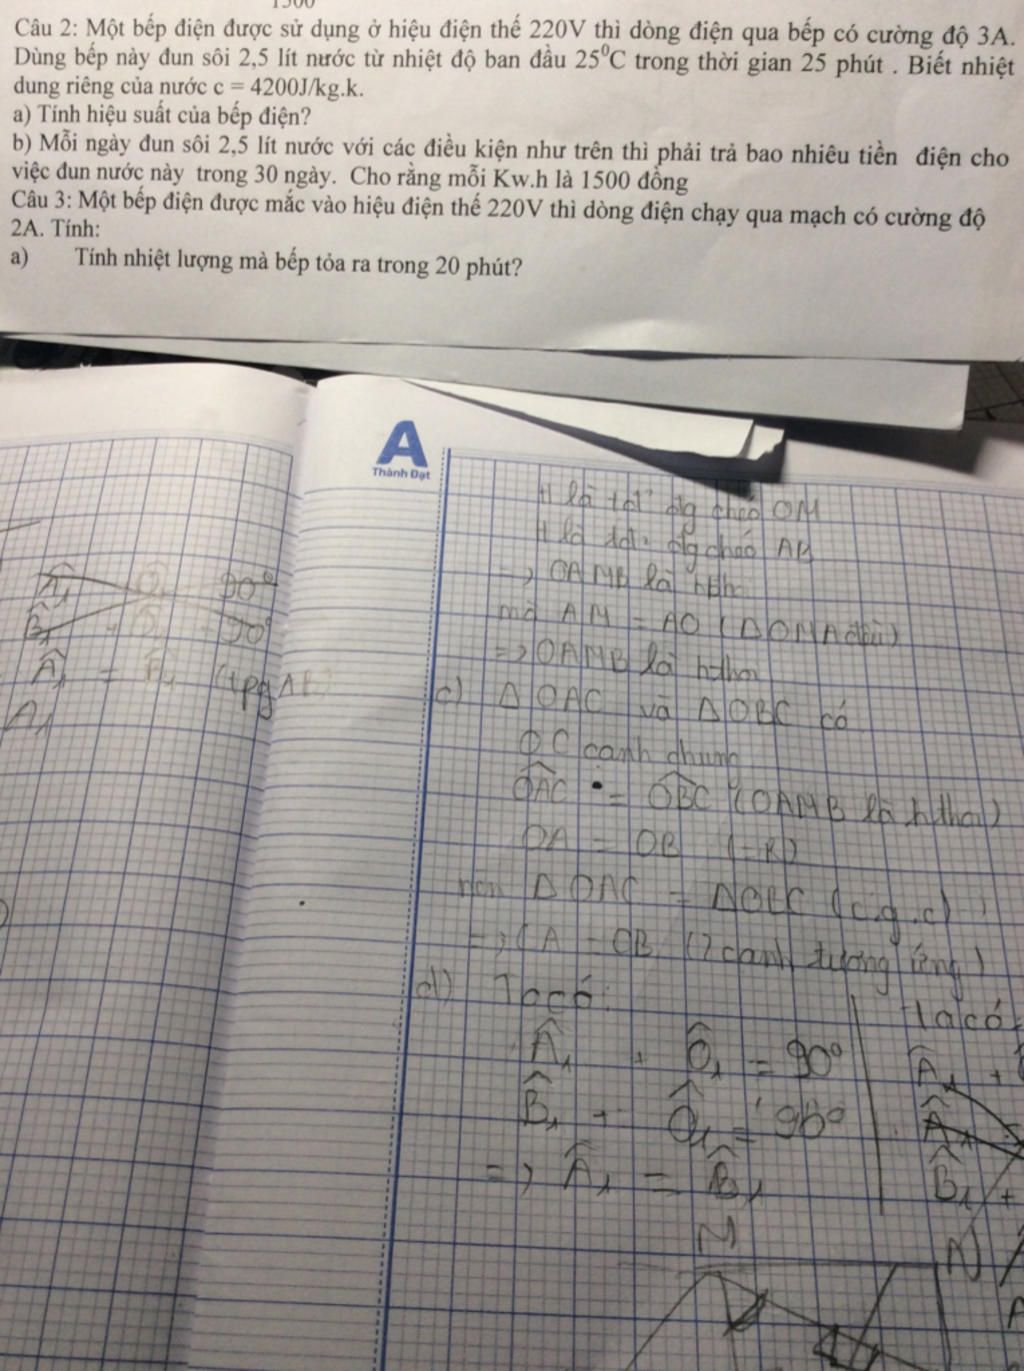 Câu 2: Một bếp điện được sử dụng ở hiệu điện thế 220V thì dòng điện qua bếp có cường độ 3A.
Dùng bếp này đun sôi 2,5 lít nước từ nhiệt độ ban đầu 25⁰C trong thời gian 25 phút . Biết nhiệt
dung riêng của nước c = 4200J/kg.k.
a) Tính hiệu suất của bếp điện?
b) Mỗi ngày đun sôi 2,5 lít nước với các điều kiện như trên thì phải trả bao nhiêu tiền điện cho
việc đun nước này trong 30 ngày. Cho rằng mỗi Kw.h là 1500 đồng
Câu 3: Một bếp điện được mắc vào hiệu điện thế 220V thì dòng điện chạy qua mạch có cường độ
2A. Tính:
a) Tính nhiệt lượng mà bếp tỏa ra trong 20 phút?
A
Thành Đạt
H là tđ đg chéo OM
H là tđ đg chéo AB
=> OAMB là hbh
mà AM = AO (ΔOMA đều)
=> OAMB là hthoi
c) ΔOAC và ΔOBC có
OC cạnh chung
OAC = OBC (OAMB là hthoi)
OA = OB (=R)
nên ΔOAC = ΔOBC (c.g.c)
=> CA = CB (2 cạnh tương ứng)
d) Ta có:
Â₁ + Ô₁ = 90⁰
B̂₁ + Ô₁ = 90⁰
=> Â₁ = B̂₁
Ta có
Â₁ +
B̂₁ +
N
N
90⁰
90⁰
Â₁ =
A₁